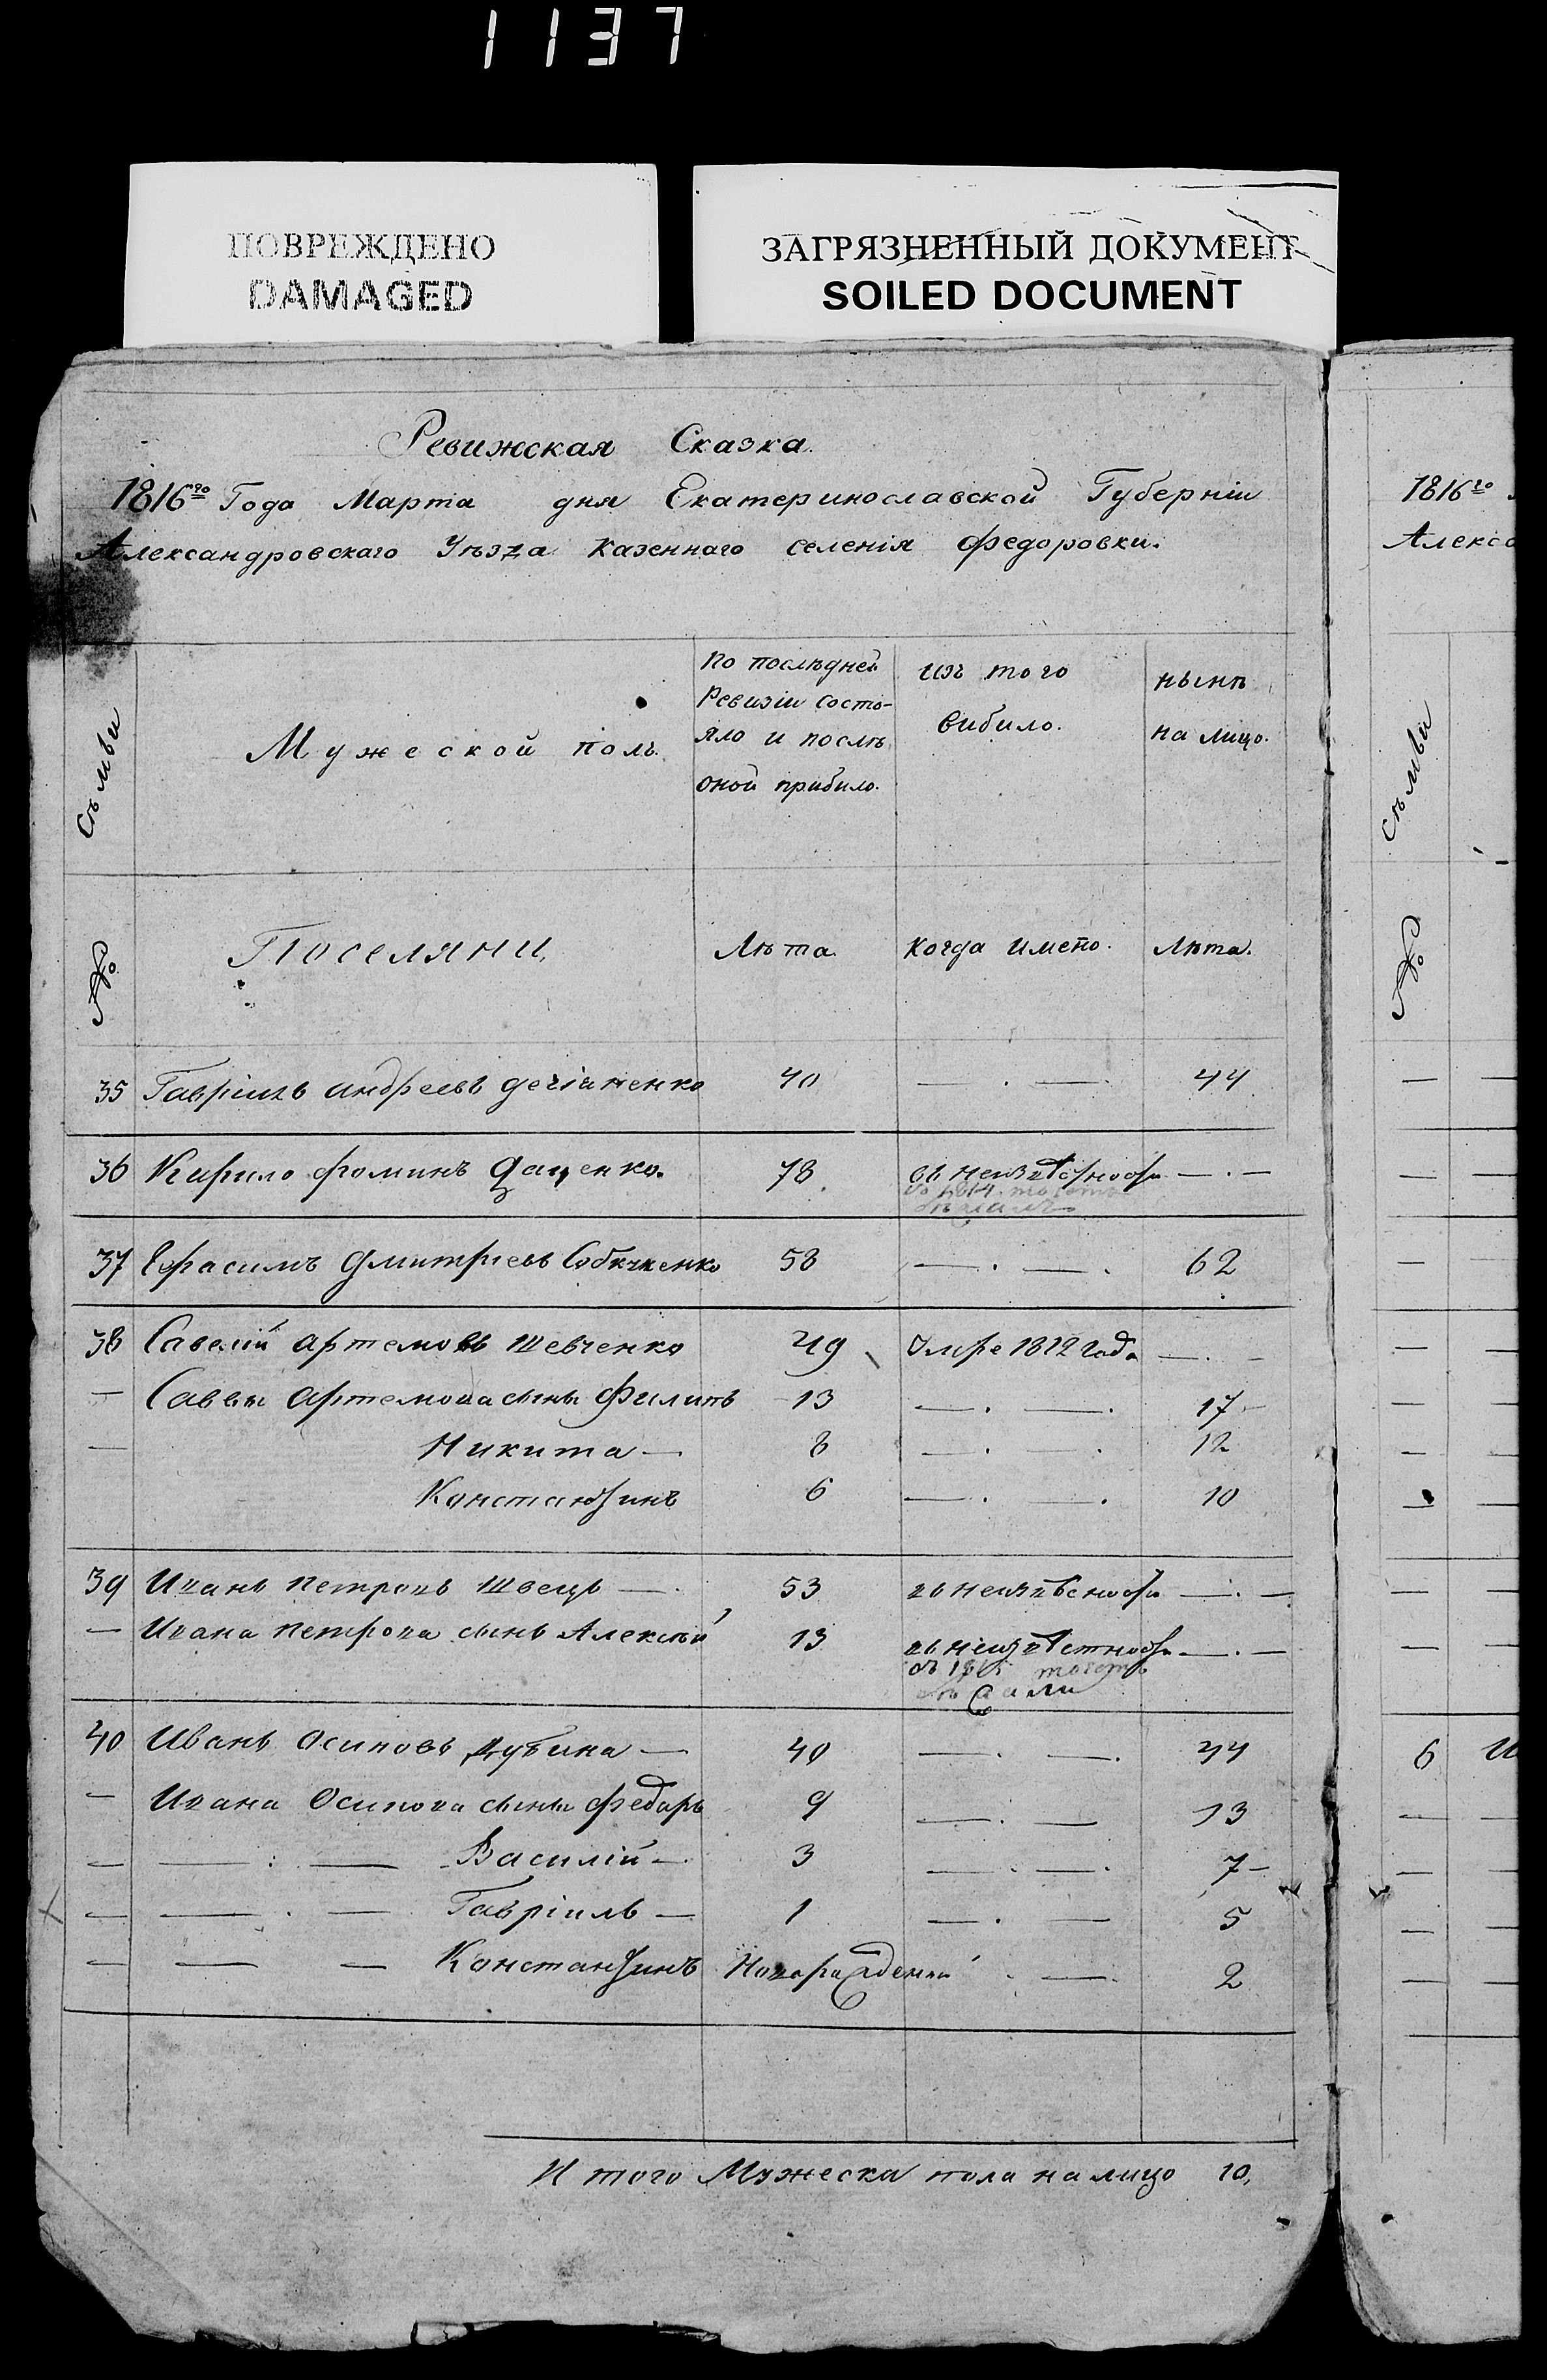 1137
ПОВРЕЖДЕНО
DAMAGED
ЗАГРЯЗНЕННЫЙ ДОКУМЕНТ
SOILED DOCUMENT
Ревижская Сказка.
1816го Года Марта дня Екатеринославской Губерніи
Александровскаго Уѣзда казеннаго селенія Федоровки.
Съмьи
Мужеской полъ.
По послѣдней
Ревизіи состо-
яло и послѣ
оной прибило.
изъ того
вибило.
нынѣ
на лицо.
№
Поселяни,
Лѣта.
когда имено.
Лѣта.
35 Гавріилъ Андреевъ 40 — . — . 44
36 Кирило Фоминъ Даценко. 78 въ неизвѣстности — . —
37 Ефрасимъ Дмитріевъ 58 — . — . 62
38 Савелій Артемовъ Шевченко 49 Умре 1812 года — . —
— Саввы Артемова сыны Филипъ 13 — . — . 17
— Никита — . 8 — . — . 12
Константинъ 6 — . — . 10
39 Иванъ Петровъ Швецъ — . 53 въ неизвѣсности — . —
— Ивана Петрова сынъ Алексѣй 13 въ неизвѣстности — . —
40 Иванъ Осиповъ Дубина — 40 — . — . 44
— Ивана Осипова сыны Федоръ 9 — . — 13
— — : — Василій — . 3 — . — . 7 —
— — . — Гавріилъ — . 1 — . — 5
— — — Константинъ Новорожденній . — . 2
И того Мужеска пола на лицо 10,
1816го
Алекса
Съмьи
№
6 И